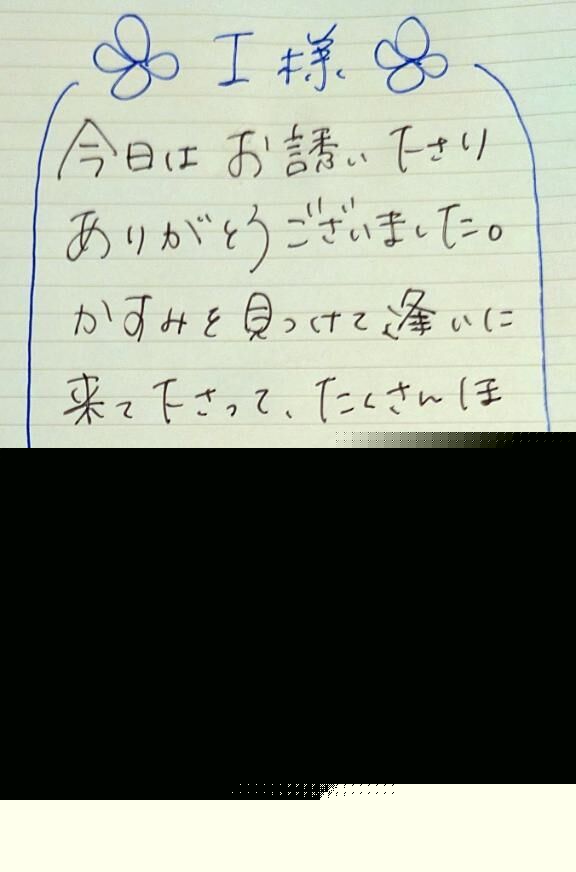 I様
今日はお誘い下さり
ありがとうございました。
かすみを見つけて逢いに
来て下さって、たくさんほ